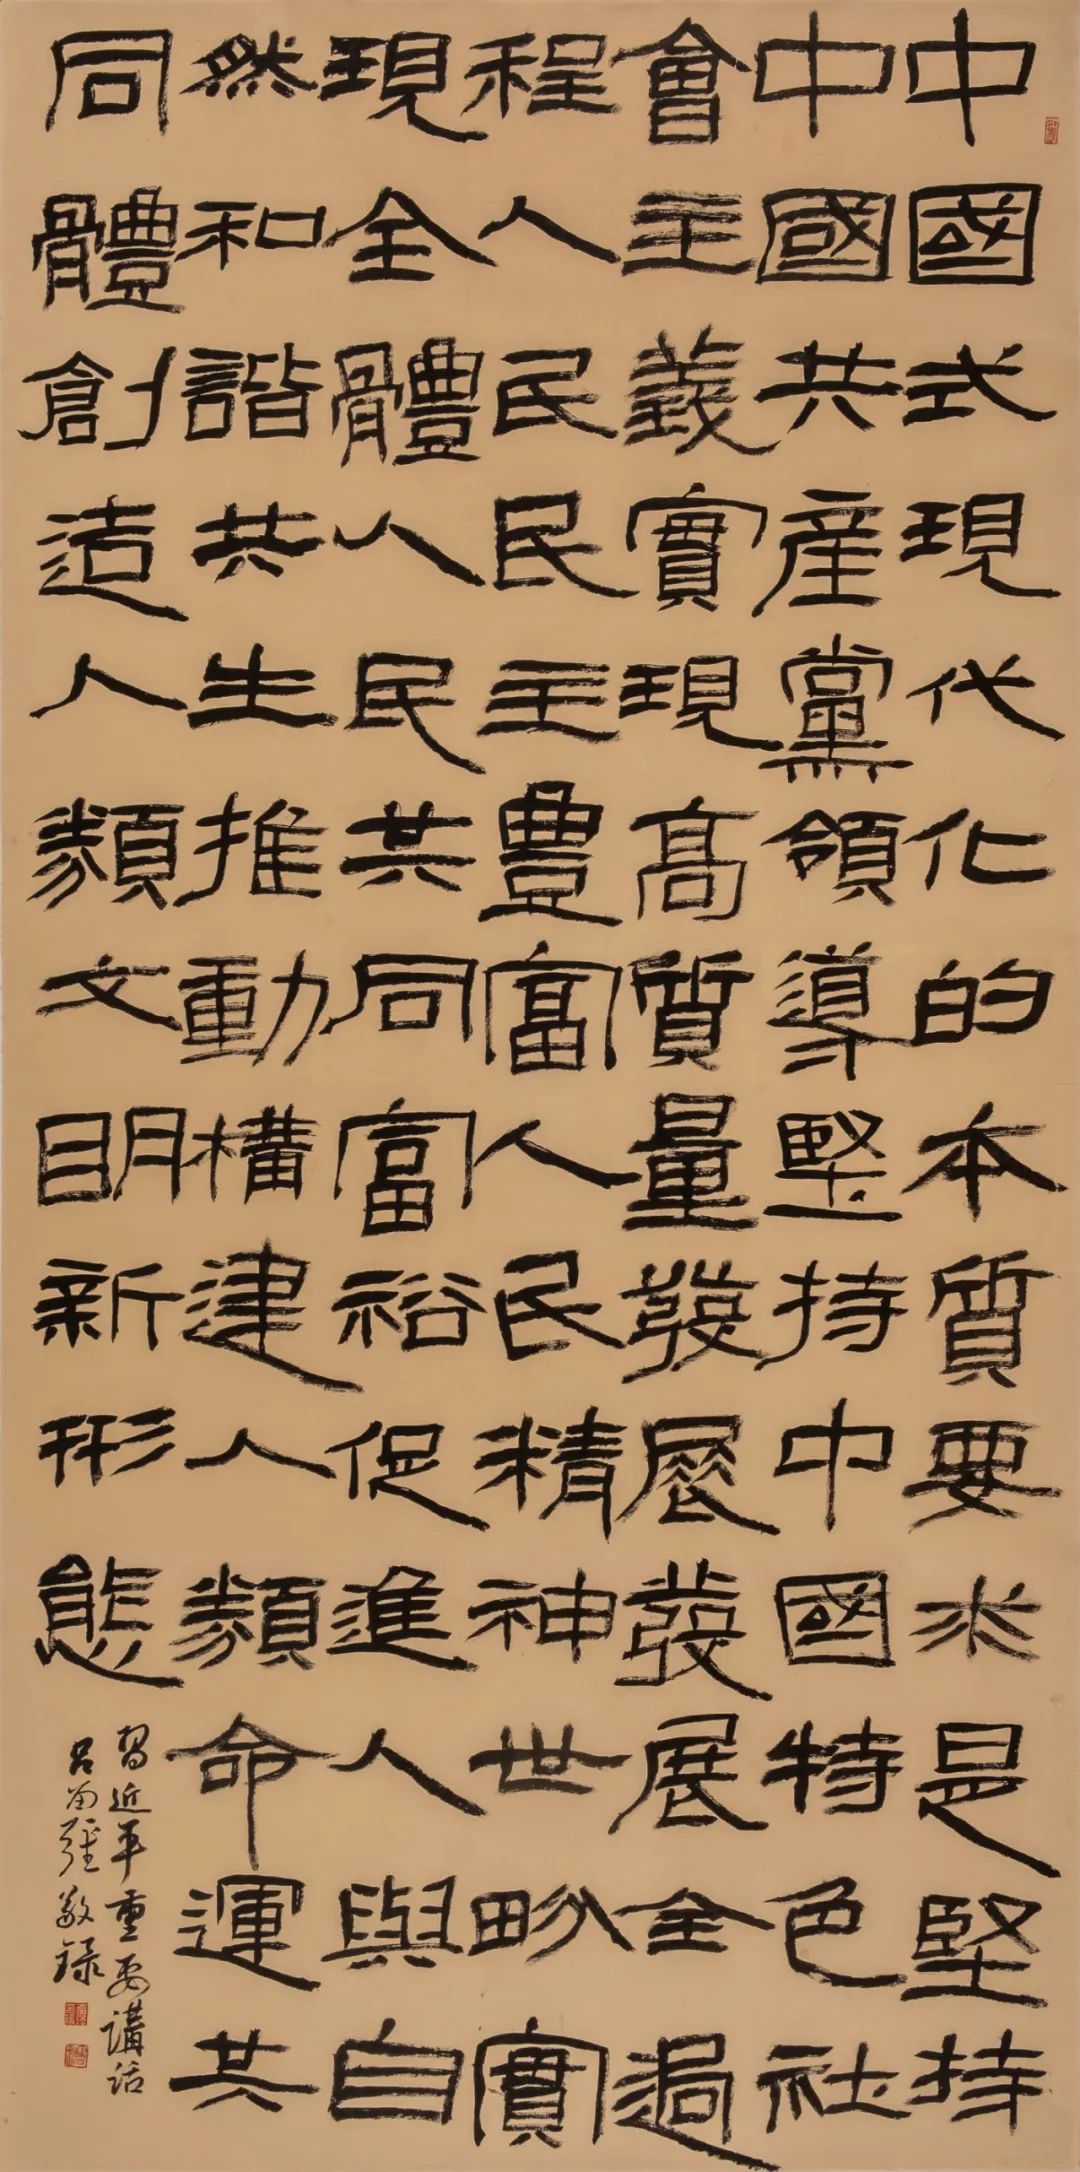 中國式現代化的本質要求是堅持
中國共産黨領導堅持中國特色社
會主義實現高質量發展發展全過
程人民民主豐富人民精神世畍實
現全體人民共同富裕促進人與自
然和諧共生推動構建人類命運共
同體創造人類文明新形態
習近平重要講話
敬録